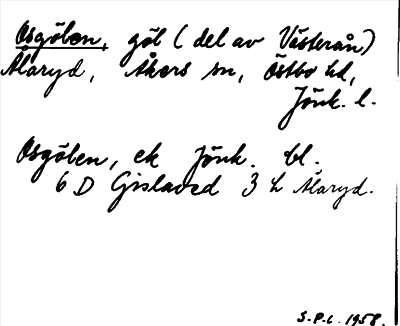 Osgölen, göl (del av Västerån)
Ålaryd, Åkers sn, Östbo hd,
Jönk. l.
Osgölen, ek Jönk. bl.
6 D Gislaved 3 h Ålaryd.
S.P.L. 1958.